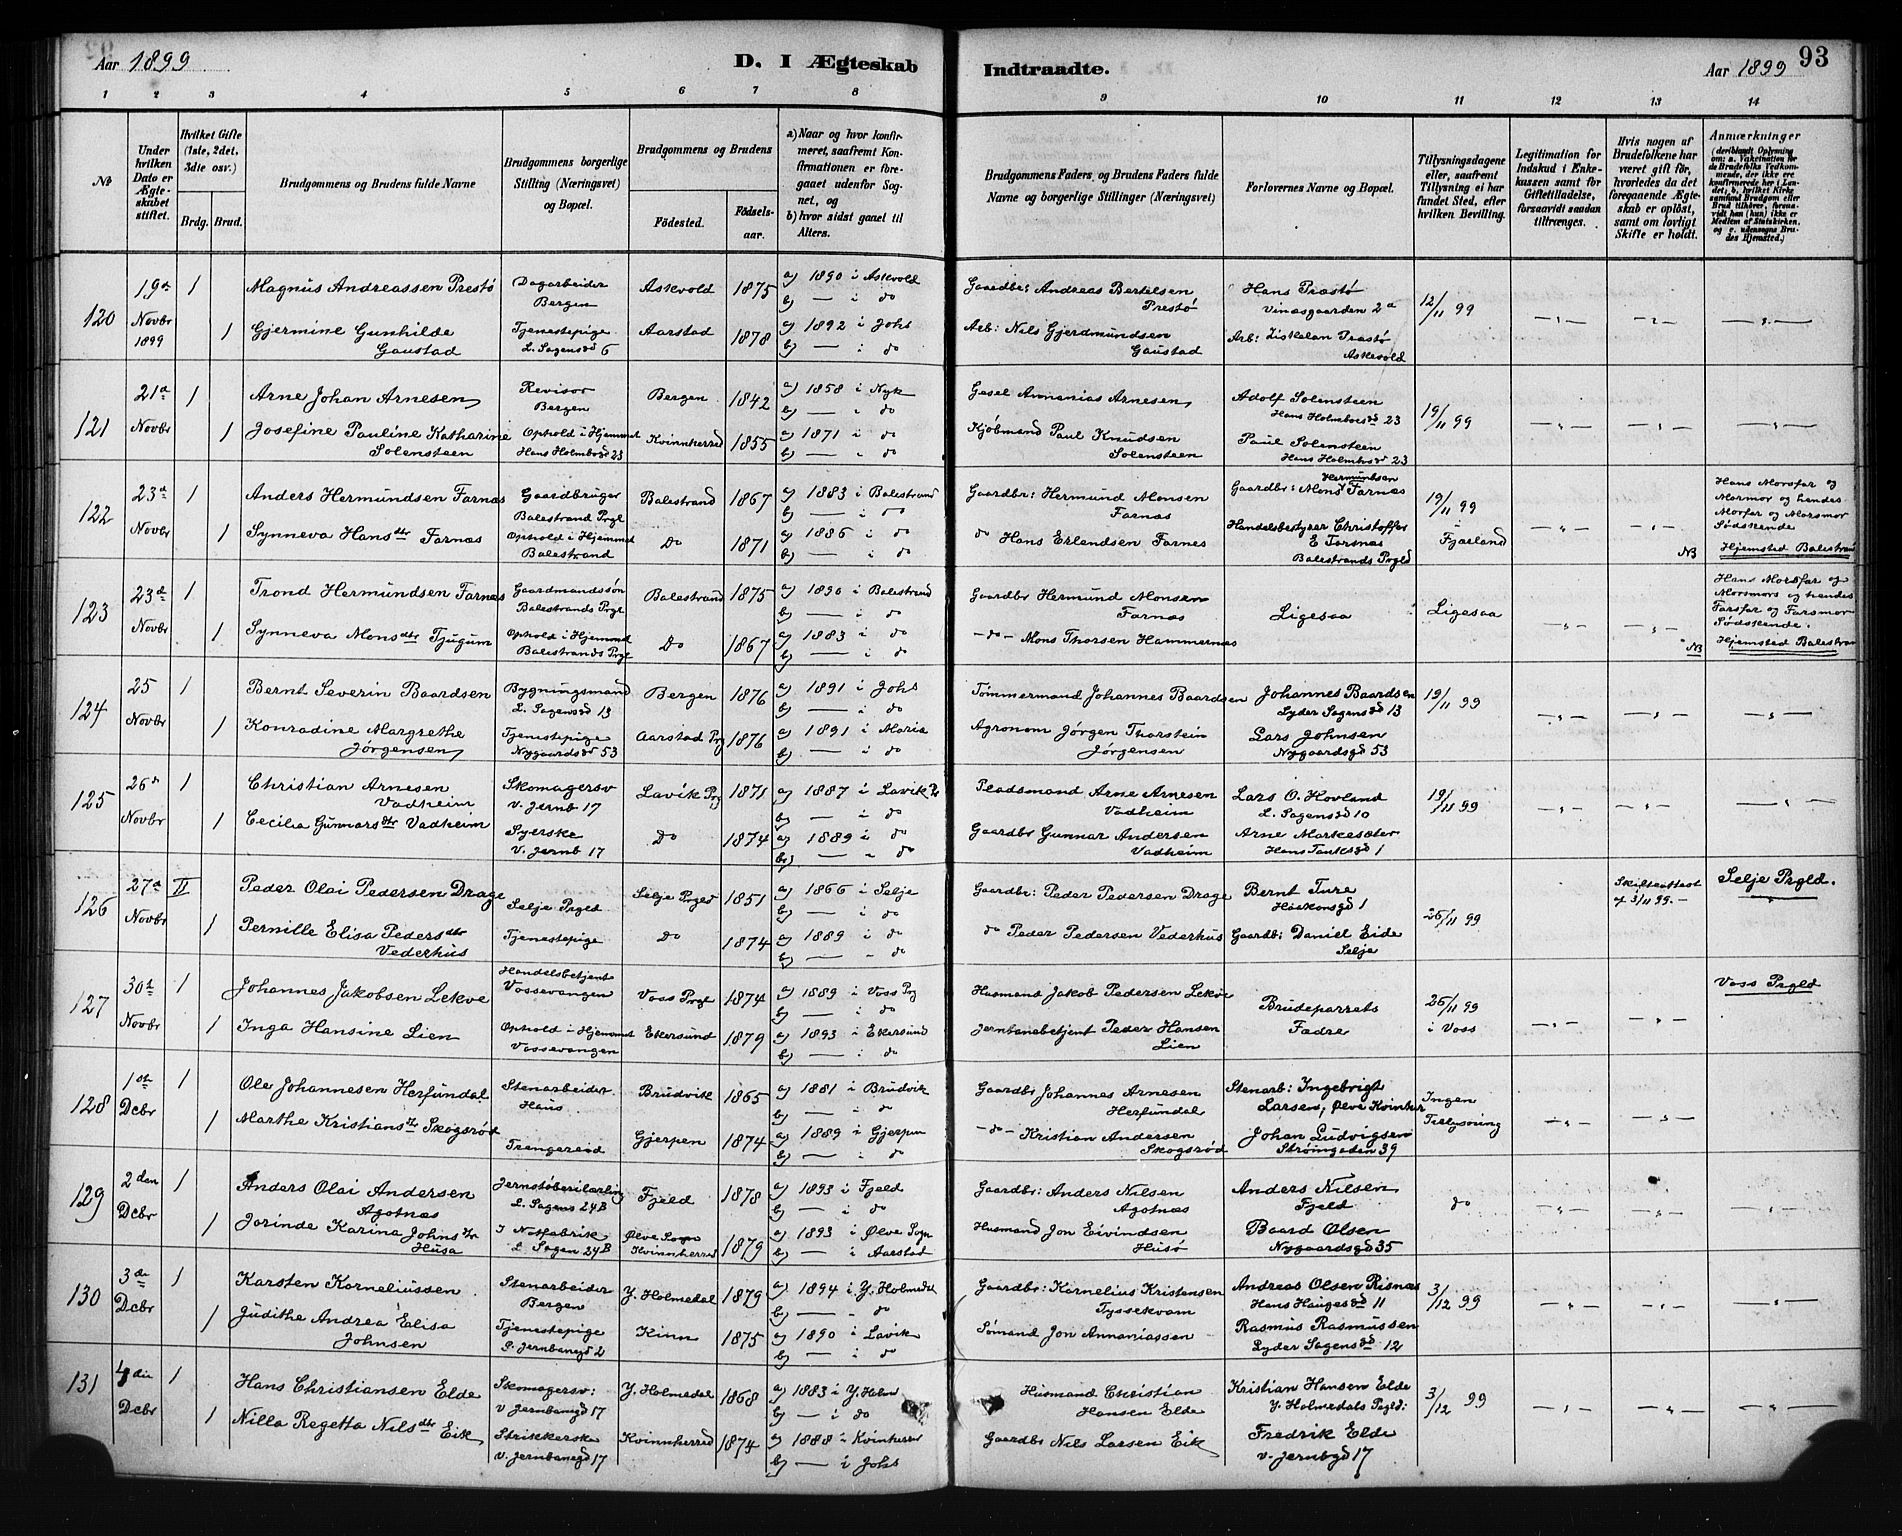 Aar 1899
D. I Ægteskab
Indtraadte.
Aar 1899
93
1 2 3 4 5 6 7 8 9 10 11 12 13 14
№
Under hvilken Dato er Ægteskabet stiftet.
Hvilket Gifte (1ste, 2det, 3die osv.)
Brdg. Brud.
Brudgommens og Brudens fulde Navne
Brudgommens borgerlige Stilling (Næringsvei) og Bopæl.
Brudgommens og Brudens
Fødested.
Fødselsaar.
a) Naar og hvor konfirmeret, saafremt Konfirmationen er foregaaet udenfor Sognet, og
b) hvor sidst gaaet til Alters.
Brudgommens Faders, og Brudens Faders fulde Navne og borgerlige Stillinger (Næringsvei)
Forlovernes Navne og Bopæl.
Tillysningsdagene eller, saafremt Tillysning ei har fundet Sted, efter hvilken Bevilling.
Legitimation for Indskud i Enkekassen samt for Giftetilladelse, forsaavidt saadan tiltrænges.
Hvis nogen af Brudefolkene har været gift før, hvorledes da det foregaaende Ægteskab er opløst, samt om lovligt Skifte er holdt.
Anmærkninger
120 19de Novbr 1899 1 Magnus Andreassen Prestø Dagarbeider Bergen Askvold 1875 a) 1890 i Askvold b) — i do Gaardbr: Andreas Bertelsen Prestø Hans Træstø Vinæsgaarden 2a 12/11 99
1 Gjermine Gunhilde Gaustad Tjenestepige L. Sagensgd 6 Aarstad 1878 a) 1892 i Johs b) — i do Arb: Nils Gjerdmundsen Gaustad Arb: Askevold
121 21de Novbr 1 Arne Johan Arnesen Revisor Bergen Bergen 1842 a) 1858 i Nyk b) — i do Gasel Annanias Arnesen Adolf Solensteen Hans Holmboesgd 23 19/11 99
1 Josefine Pauline Katharine Solensteen Ophold i Hjemmet Hans Holmbogd 23 Kvinnherred 1855 a) 1871 i do b) — i do Kjøbmand Paul Knudsen Solensteen Paul Solensteen Hans Holmbsgd 23
122 23de Novbr 1 Anders Hermundsen Farnæs Gaardbruger Balestrand Prgl Balestrand 1867 a) 1883 i Balestrand b) — i do Gaardbr: Hermund Monsen Farnæs Gaardbr: Mons Hermundsen Farnæs 19/11 99 i Fjærland Hans Morsfar og Mormor og hendes Morfar og Morsmor Sødskende
1 Synneva Hansdtr Farnæs Ophold i Hjemmet Balestrand Do 1871 a) 1886 i do b) — i do do Hans Erlendsen Farnes Handelsbestyrer Christoffer E Farsnæs Balestrands Prgld NB Hjemsted Balestrand
123 23de Novbr 1 Trond Hermundsen Farnæs Gaardmandssøn Balestrands Prgl Balestrand 1875 a) 1890 i Balestrand b) — i do Gaardbr Hermund Monsen Farnæs Ligesaa Ligesaa Hans Morsfar og Morsmors og hendes Farsfar og Farsmor Sødskende.
1 Synneva Monsdtr Tjugum Ophold i Hjemmet Balestrands Prgl Do 1867 a) 1883 i do b) — i do —do— Mons Thorsen Hammernæs NB Hjemsted Balestran
124 25 Novbr 1 Bernt Severin Baardsen Bygningsmand L. Sagensgd 13 Bergen 1876 a) 1891 i Johs b) — i do Tømmermand Johannes Baardsen Johannes Baardsen Lyder Sagensgd 13 19/11 99
1 Konradine Margrethe Jørgensen Tjenestepige Nygaardsgd 53 Aarstad Prg 1876 a) 1891 i Maria b) — i do Agronom Jørgen Thorstein Jørgensen Lars Johnsen Nygaardsgd 53
125 26de Novbr 1 Christian Arnesen Vadheim Skomagersv v. Jernb 17 Lavik Prg 1871 a) 1887 i Lavik Pr b) — i do Pladsmand Arne Arnesen Vadheim Lars O. Hovland L. Sagensgd 10 19/11 99
1 Cecilia Gunnarsdtr Vadheim Syerske v. Jernb 17 Do 1874 a) 1889 i do b) — " do Gaardbr Gunnar Andersen Vadheim Arne Markesæter Hans Tanksgd 1
126 27de Novbr II Peder Olai Pedersen Drage Selje Prgld Selje Prgld 1851 a) 1866 i Selje b) — i do Gaardbr: Peder Pedersen Drage Bernt Ture Haakonsgd 1 26/11 99 Skifteattest af 3/11 99. Selje Prgld.
1 Pernille Elisa Pedersdtr Vederhus Tjenestepige Do 1874 a) 1889 i do b) — " do do Peder Pedersen Vederhus Gaardb: Daniel Eide Selje
127 30te Novbr 1 Johannes Jakobsen Lekve Handelsbetjent Vossevangen Voss Prgl 1874 a) 1889 i Voss Prg b) — i do Husmand Jakob Pedersen Lekve Brudeparrets Fædre 26/11 99 i Voss Voss Prgld
1 Inga Hansine Lien Ophold i Hjemmet Vossevangen Ekersund 1879 a) 1893 i Ekersund b) — i do Jernbanebetjent Peder Hansen Lien
128 1ste Dcbr 1 Ole Johannesen Herfundal Stenarbeider Haus Brudvik 1865 a) 1881 i Brudvik b) — i do Gaardbr Johannes Arnesen Herfundal Stenarb: Ingebrigt Larsen, Ølve Kvinher Ingen Tillysning
1 Marthe Kristiansdtr Skogsrød Trengereid Gjerpen 1874 a) 1889 i Gjerpen b) — i do —do— Kristian Andersen Skogsrød Johan Ludvigsen Strømgaden 39
129 2den Dcbr 1 Anders Olai Andersen Agotnæs Jernstøberilærling L. Sagens 24B Fjeld 1878 a) 1893 i Fjeld b) — i do Gaardbr: Anders Nilsen Agotnæs Anders Nilsen Fjeld do
1 Jorinde Karina Johnsdtr Husa I Notfabrik L Sagen 24B Ølve Sogn Kvinnherred 1879 a) 1893 i Ølve Sogn b) — i Aarstad Husmand Jon Eivindsen Husø Baard Olsen Nygaardsgd 35
130 3de Dcbr 1 Karsten Korneliussen Stenarbeider Bergen Y. Holmedal 1879 a) 1894 i Y. Holmedal b) — i do Gaardbr: Kornelius Kristensen Tyssekvam Andreas Olsen Risnæs Hans Haugesgd 11 3/12 99
1 Judithe Andrea Elisa Johnsen Tjenestepige Jernbanegd 2 Kinn 1875 a) 1890 i Lavik b) — i do Sømand Jon Annaniassen Rasmus Rasmussen Lyder Sagensgd 12
131 4de Dcbr 1 Hans Christiansen Elde Skomagersv: v Jernbanegd 17 Y. Holmedal 1868 a) 1883 i Y. Holm b) — i do Husmand Christian Hansen Elde Kristian Hansen Elde Y. Holmedals Prgld: 3/12 99
1 Nilla Regetta Nilsdtr Eik Strikkerske v. Jernbanegd 17 Kvinnherred 1874 a) 1888 i Kvinherred b) — i Johs Gaardbr Nils Larsen Eik Fredrik Elde v. Jernbgd 17